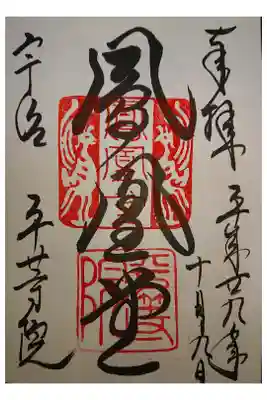 奉拝
平成廿九年
十月九日
鳳凰堂
宇治
平等院